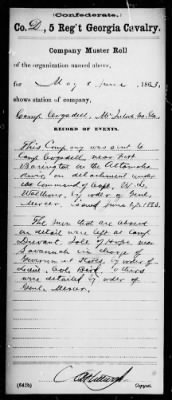 (Confederate.)
Co. D, 5 Reg't Georgia Cavalry.
Company Muster Roll
of the organization named above,
for May & June, 1863,
shows station of company,
Camp McIntosh Co. Ga.
RECORD OF EVENTS.
This Company was sent to
Camp near Fort
Barrington on the Altamaha
River on detachment under
the command of Capt. W. L.
by order of Genl.
Mercer, issued June 1863.
The men that are absent
on detail were left at Camp
Isle of Hope near
Savannah in charge of
by order of
Bird. Others
were detailed by order of
Genl. Mercer.
(642b)
Copyist.